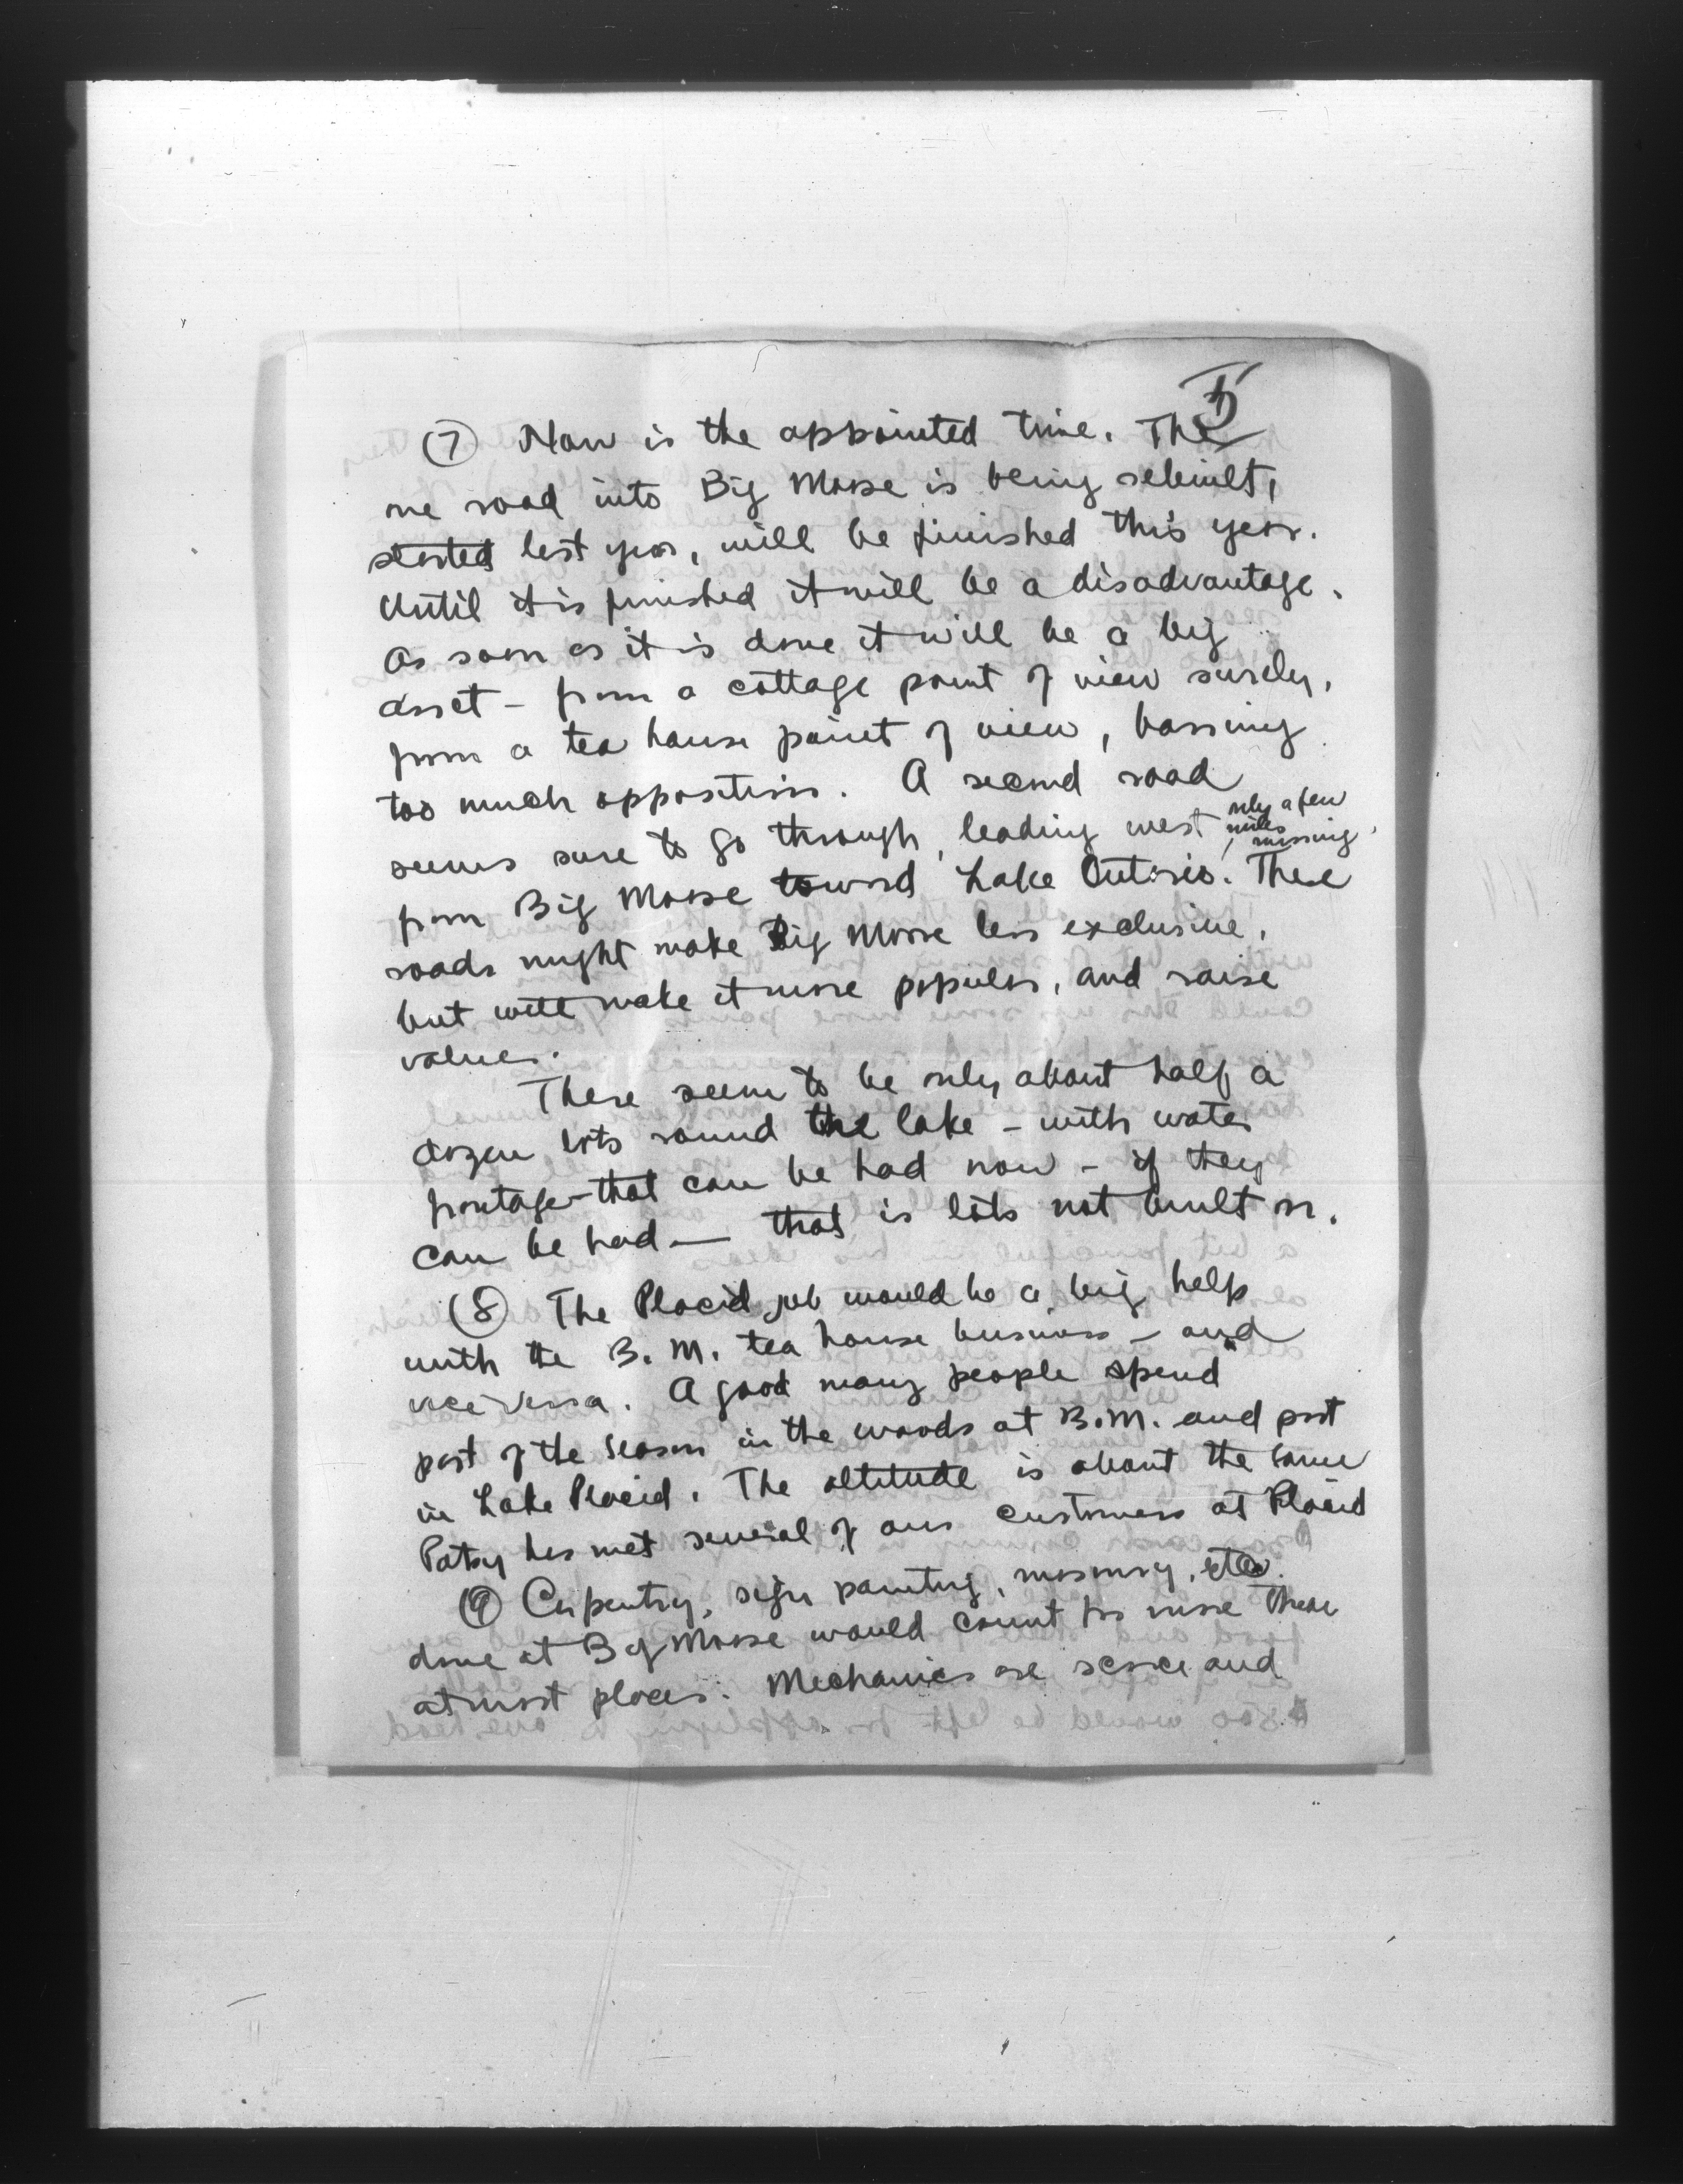 5
(7) Now is the appointed time. The
one road into Big Moose is being rebuilt,
started last year, will be finished this year.
Until it is finished it will be a disadvantage.
As soon as it is done it will be a big
asset - from a cottage point of view surely,
from a tea house point of view, barring
too much opposition. A second road
seems sure to go through, leading west only a few
miles missing,
from Big Moose toward Lake Ontario. These
roads might make Big Moose less exclusive,
but will make it more popular, and raise
values.
There seem to be only about half a
dozen lots round the lake - with water
frontage - that can be had now - if they
can be had — that is lots not built on.
(8) The Placid job would be a big help
with the B. M. tea house business - and
vice versa. A good many people spend
part of the season in the woods at B.M. and part
in Lake Placid. The altitude is about the same
Patsy has met several of our customers at Placid
(9) Carpentry, sign painting, masonry, etc.
done at Big Moose would count for more than
at most places. Mechanics are scarce and